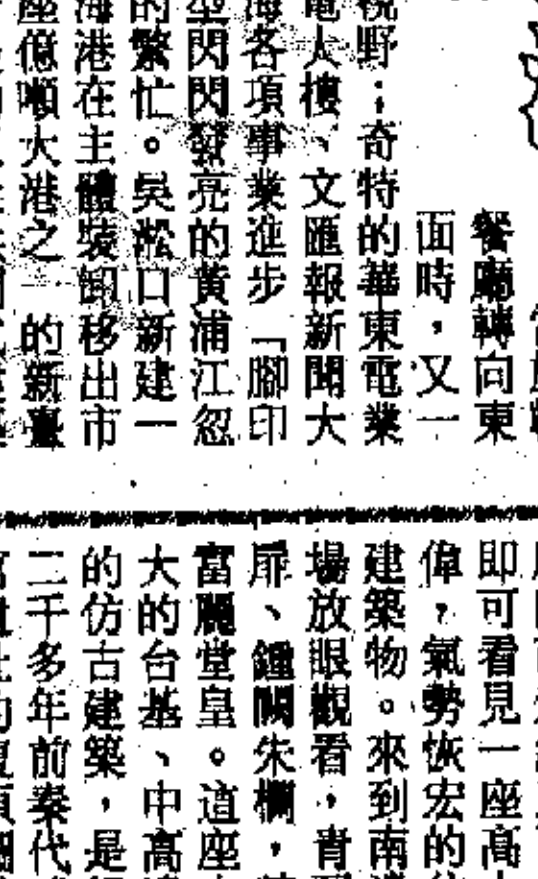 餐廳轉向東
面時，又一
視野；奇特的華東電業
電大樓、文匯報新聞大
海各項事業進步「腳印
型閃閃發亮的黃浦江忽
的繁忙。吳淞口新建一
海港在主體裝卸移出市
座億噸大港之一的新臺
即可看見一座高
偉，氣勢恢宏的
建築物。來到南
場放眼觀看，青
扉、鐘闕朱欄，
富麗堂皇。這座
大的台基、中高
的仿古建築，是
二千多年前秦代